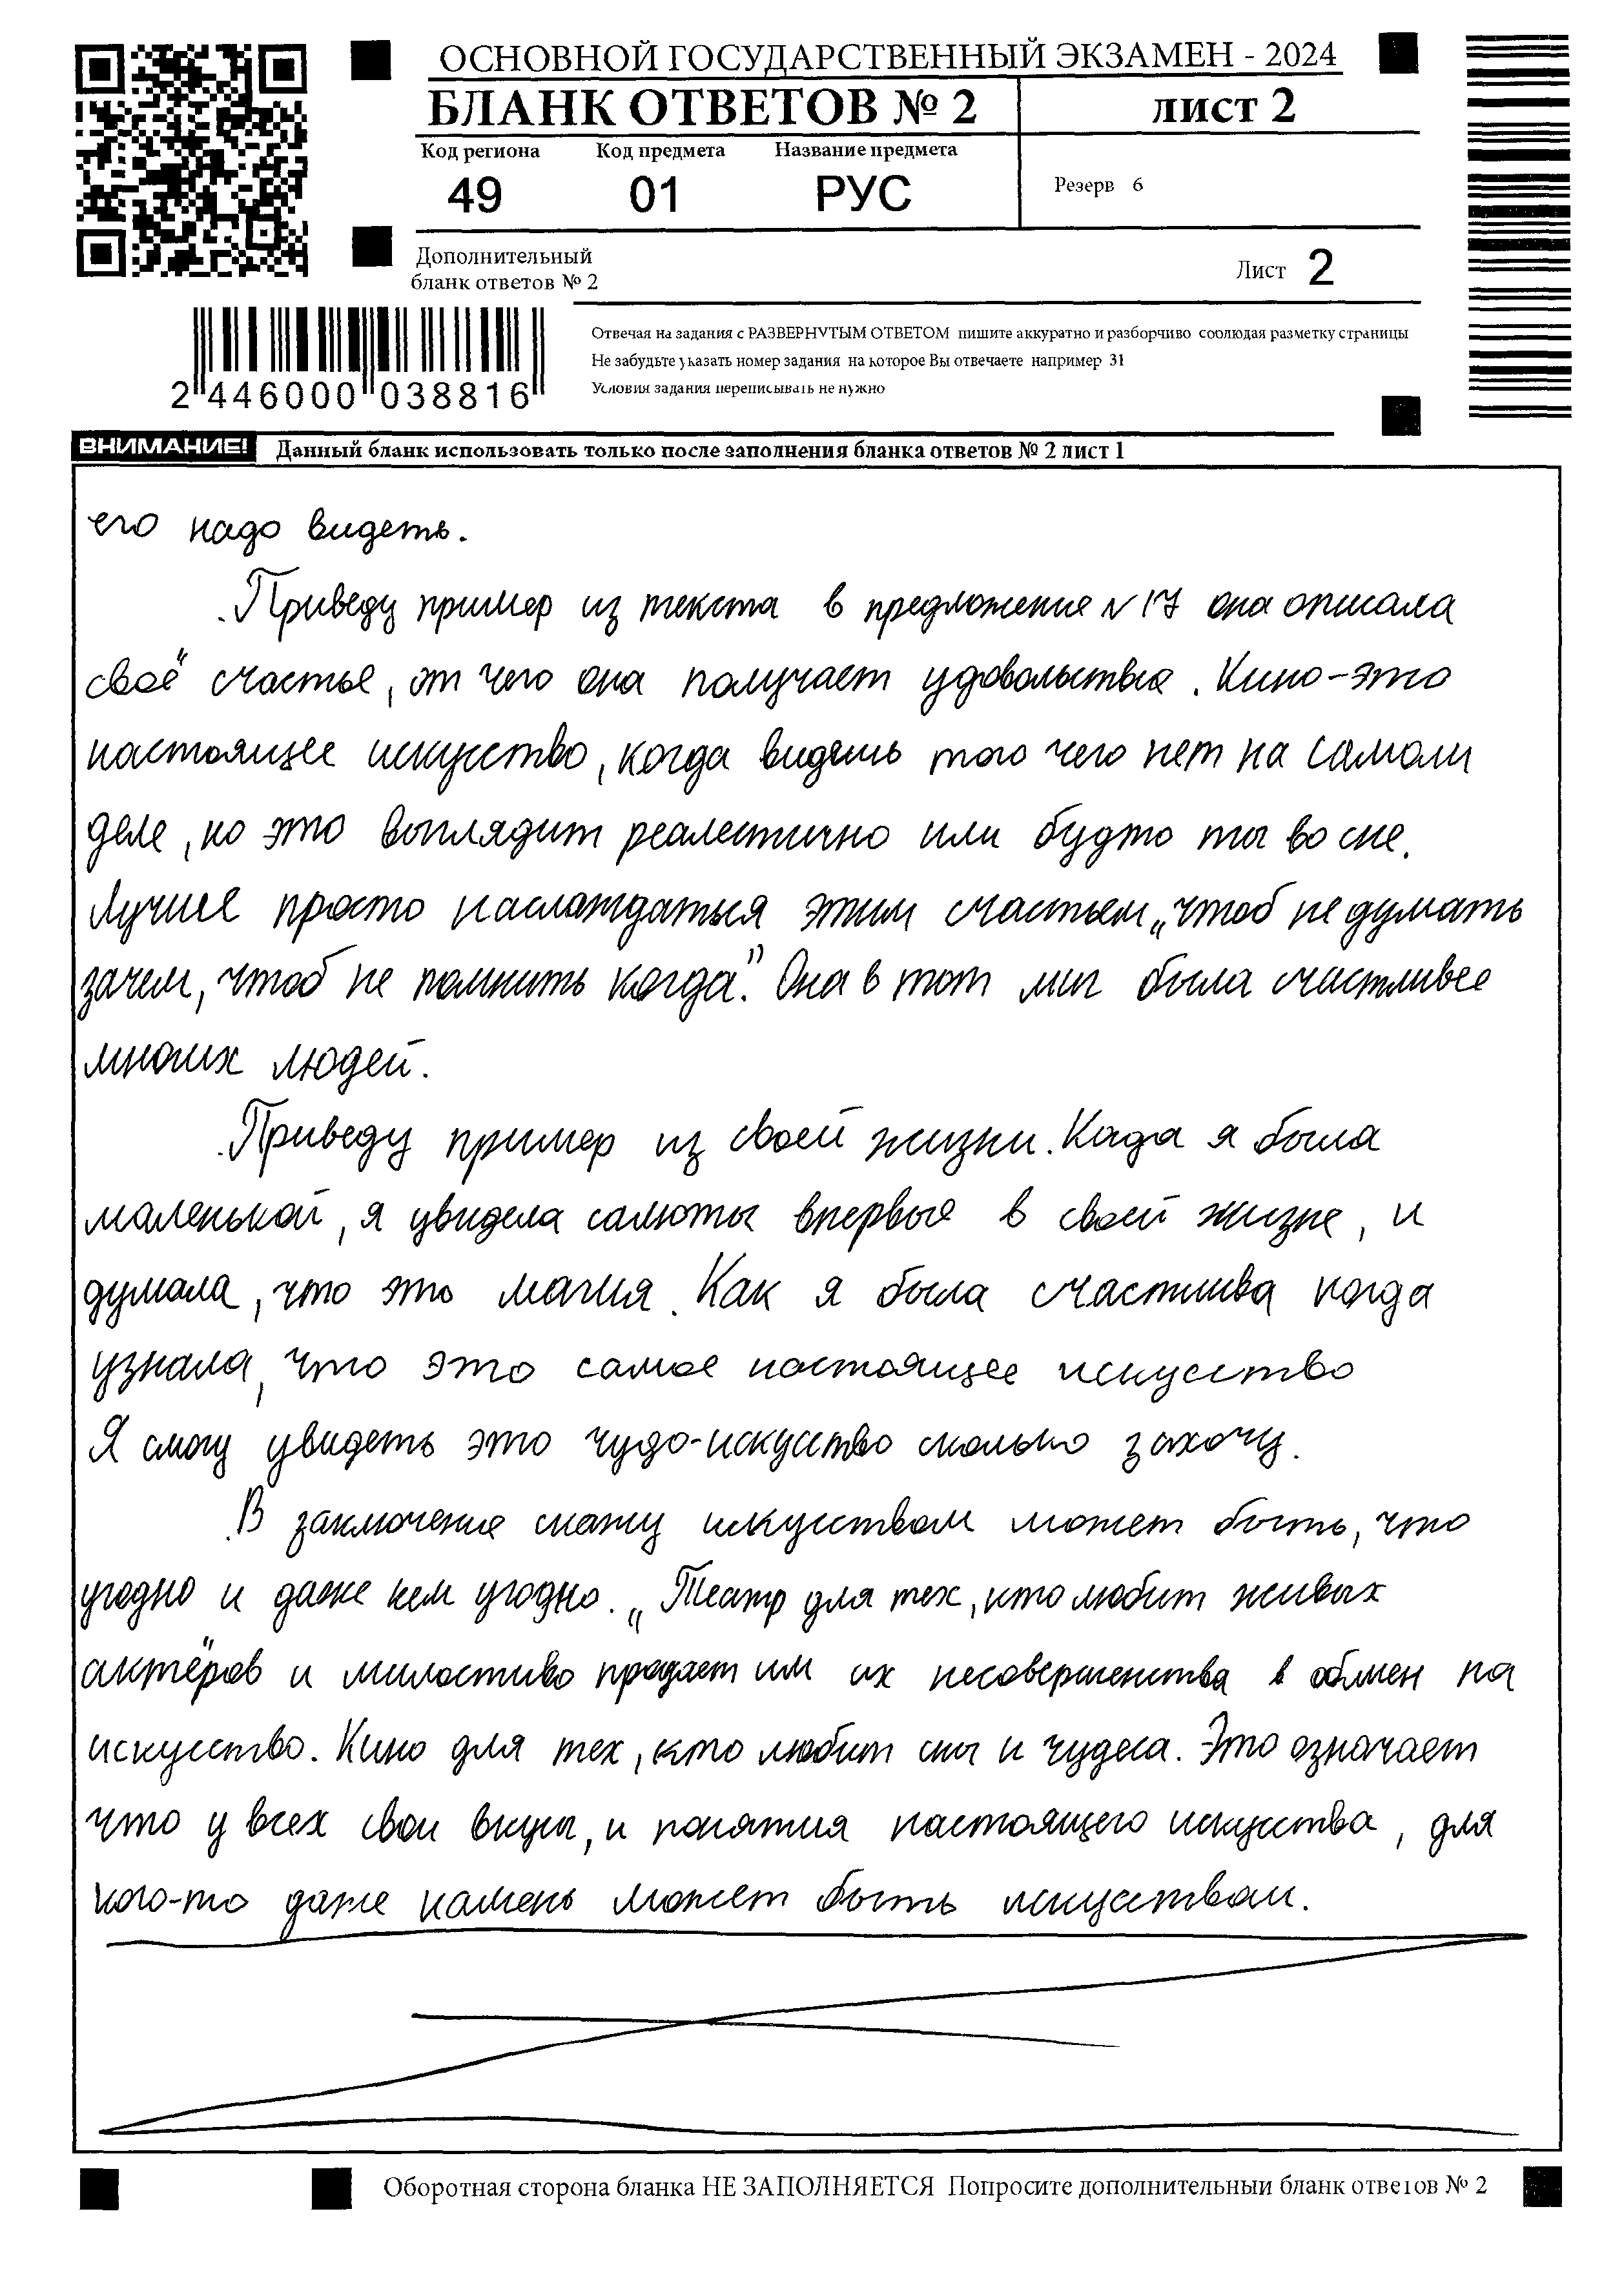 ОСНОВНОЙ ГОСУДАРСТВЕННЫЙ ЭКЗАМЕН - 2024
БЛАНК ОТВЕТОВ № 2 лист 2
Код региона Код предмета Название предмета
49 01 РУС
Резерв 6
Дополнительный
бланк ответов № 2
Лист 2
Отвечая на задания с РАЗВЕРНУТЫМ ОТВЕТОМ пишите аккуратно и разборчиво соблюдая разметку страницы
Не забудьте указать номер задания на которое Вы отвечаете например 31
Условия задания переписывать не нужно
2 446000 038816
ВНИМАНИЕ! Данный бланк использовать только после заполнения бланка ответов № 2 лист 1
его надо видеть.
Приведу пример из текста в предложение N 17 она описала
своё счастье, от чего она получает удовольствие. Кино-это
настоящее искусство, когда видешь того чего нет на самом
деле, но это выглядит реалестично или будто ты во сне.
Лучше просто наслаждаться этим счастьем „чтоб не думать
зачем, чтоб не помнить когда". Она в тот миг была счастливее
многих людей.
Приведу пример из своей жизни. Када я была
маленькой, я увидела салюты впервые в своей жизне, и
думала, что это магия. Как я была счастлива когда
узнала, что это самое настоящее искусство
Я смогу увидеть это чудо-искуство сколько захочу.
В заключение скажу искусством может быть, что
угодно и даже кем угодно. „Театр для тех, кто любит живых
актёров и милостиво продает им их несовершенства в обмен на
искусство. Кино для тех, кто любит сны и чудеса. Это означает
что у всех свои вкусы, и понятия настоящего искусства, для
кого-то даже камень может быть искуством.
Оборотная сторона бланка НЕ ЗАПОЛНЯЕТСЯ Попросите дополнительный бланк ответов № 2